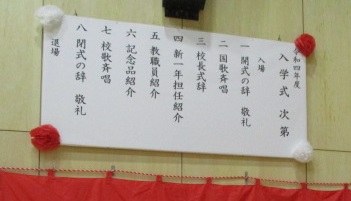 令和四年度
入学式 次第
入場
一 開式の辞 敬礼
二 国歌斉唱
三 校長式辞
四 新一年担任紹介
五 教職員紹介
六 記念品紹介
七 校歌斉唱
八 閉式の辞 敬礼
退場